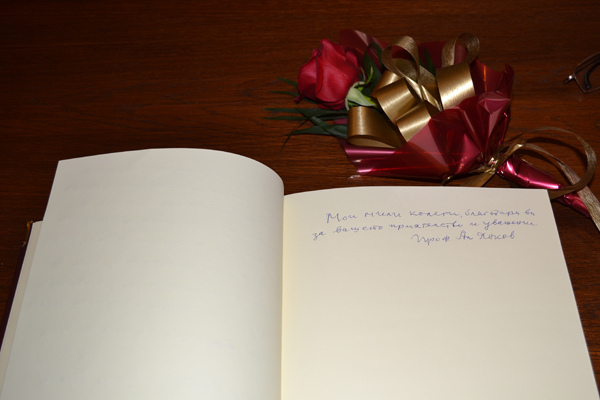 Мои мили колеги, благодаря ви
за вашето приятелство и уважение
Проф Ал